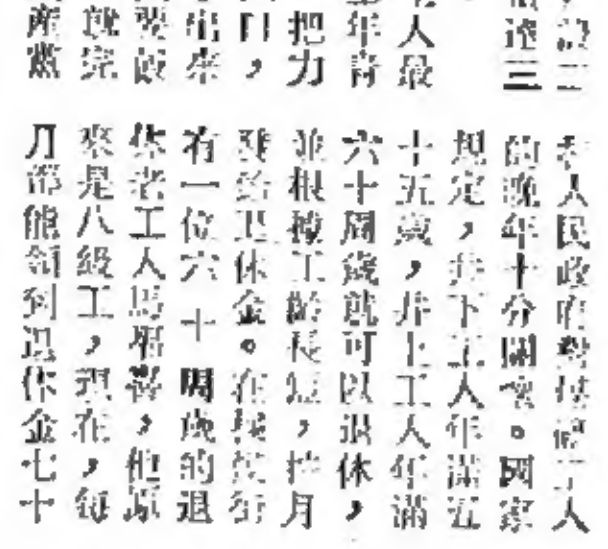 設二
達三
人最
年青
把力
，
出來
要飯
就完
產黨
和人民政府對煤礦工人
的晚年十分關懷。國家
規定，井下工人年滿五
十五歲，井上工人年滿
六十周歲就可以退休，
並根據工齡長短，按月
發給退休金。在街
有一位六十周歲的退
休老工人馬善，他原
來是八級工，現在，每
月都能領到退休金七十